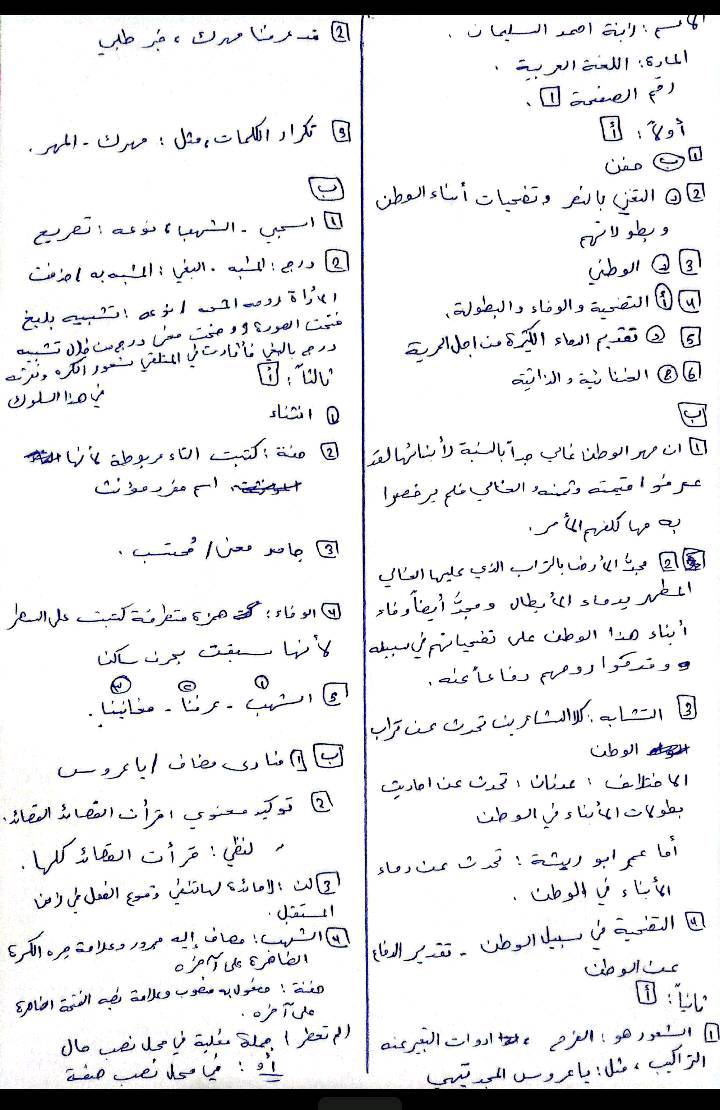 الاسم : رابنة احمد السليمان .
المادة : اللغة العربية .
رقم الصفحة 1 .
أولاً : أ
1 ب حفن
2 د التغني بالنصر وتضحيات أبناء الوطن
وبطولاتهم
3 د الوطني
4 أ التضحية والوفاء والبطولة .
5 د تقديم الدماء الكثيرة من اجل الحرية
6 الغنائية والذاتية
ب
1 ان مهر الوطن غالي جداً بالنسبة لأبنائها لقد
عرفوا قيمته وثمنه الغالي فلم يرخصوا
به مهما كلفهم الأمر .
2 مجدَّ الأرض بالتراب الذي عليها الغالي
المطهر بدماء الأبطال ومجدَّ أيضاً وفاء
أبناء هذا الوطن على تضحياتهم في سبيله
وقدموا روحهم دفاعاً عنه .
3 التشابه : كلا الشاعرين تحدث عن تراب
الوطن
الاختلاف : عدنان : تحدث عن احاديث
بطولات الأبناء في الوطن
أما عمر ابو ريشة : تحدث عن دماء
الأبناء في الوطن .
4 التضحية في سبيل الوطن - تقدير الدفاع
عن الوطن
ثانياً : أ
1 الشعور هو : الفرح ، ادوات التعبير عنه
التراكيب ، مثل : يا عروس المجد تيهي
2 قد عرفنا مهرك ، خبر طلبي
3 تكرار الكلمات ، مثل : مهرك - المهر .
ب
1 اسحبي - الشهبا ، نوعه : تصريع
2 درج : المشبه - البغي : المشبه به / حذفت
الأداة ووجه الشبه / نوعه : تشبيه بليغ
درج بالبغي فأثارت في المتلقي شعور الكره ونفرته
في هذا السلوك
ثالثاً : أ
1 انثناء
2 حفنة : كتبت التاء مربوطة لأنها
اسم مفرد مؤنث
3 جامد معنى / مُحتسب .
4 الوفاء : همزة متطرفة كتبت على السطر
لأنها سبقت بحرف ساكن
5 الشهب - عرفنا - مغانينا .
ب 1 منادى مضاف / يا عروس
2 توكيد معنوي : قرأت القصائد القصائد .
" لفظي : قرأت القصائد كلها .
3 لن : لإفادة لهاتنفي وقوع الفعل في زمن
المستقبل .
4 الشهب : مضاف إليه مجرور وعلامة جره الكسرة
الظاهرة على آخره
حفنة : مفعول به منصوب وعلامة نصبه الفتحة الظاهرة
على آخره .
(لم تعطر) جملة فعلية في محل نصب حال
أو : في محل نصب صفة